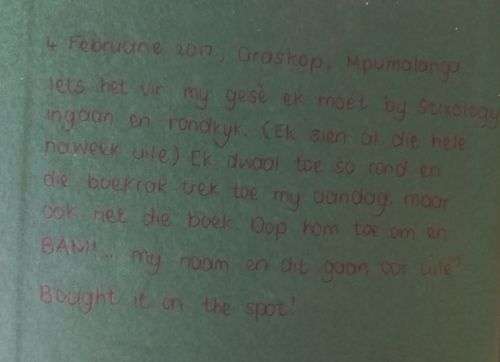 4 Februarie 2017, Graskop, Mpumalanga
Iets het vir my gesê ek moet by
ingaan en rondkyk. (Ek sien al die hele
naweek uile) Ek dwaal toe so rond en
die boekrak trek toe my aandag maar
ook net die boek. Oop hom toe om en
BAM!!... my naam en dit gaan oor uile!
Bought it on the spot!